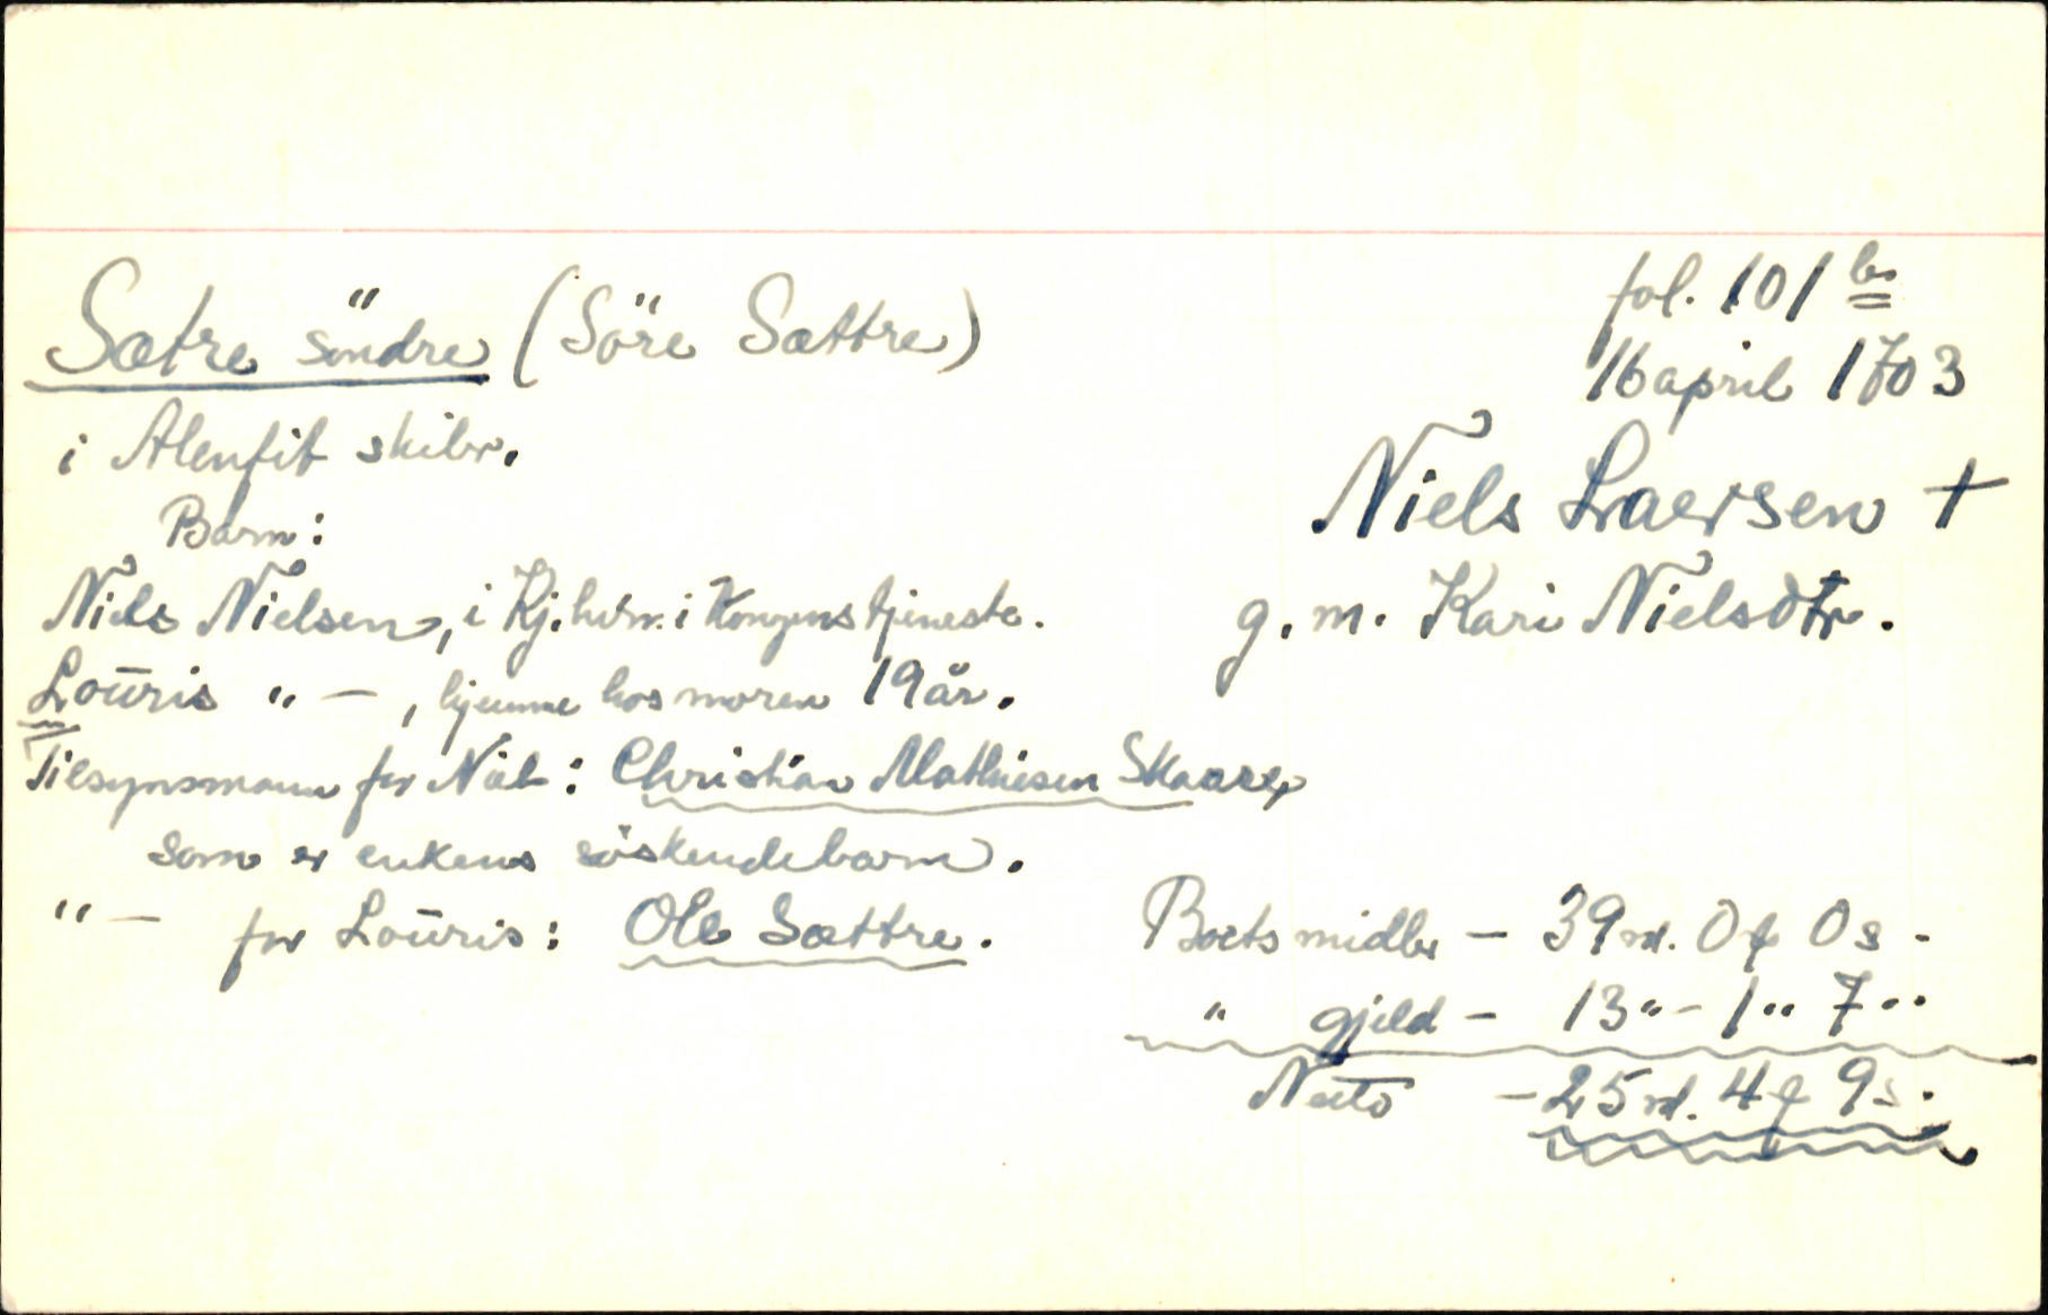 Sætre söndre (Söre Sættre)
fol. 101 b
16 april 1703
i Alenfit skibr.
Niels Laersen †
g. m. Kari Nielsdtr.
Barn:
Niels Nielsen, i Kj.hvn. i Kongens tjeneste.
Loūris " — , hjemme hos moren 19 år.
Tilsynsmann for Niels: Christian Mathiesen Skaarer
som er enkens söskendebarn.
" — for Loūris: Ole Sættre.
Boets midler — 39 rd. 0 q 0 s -
" gjeld — 13 " - 1 " 7 "
Netto — 25 rd. 4 q 9 s.